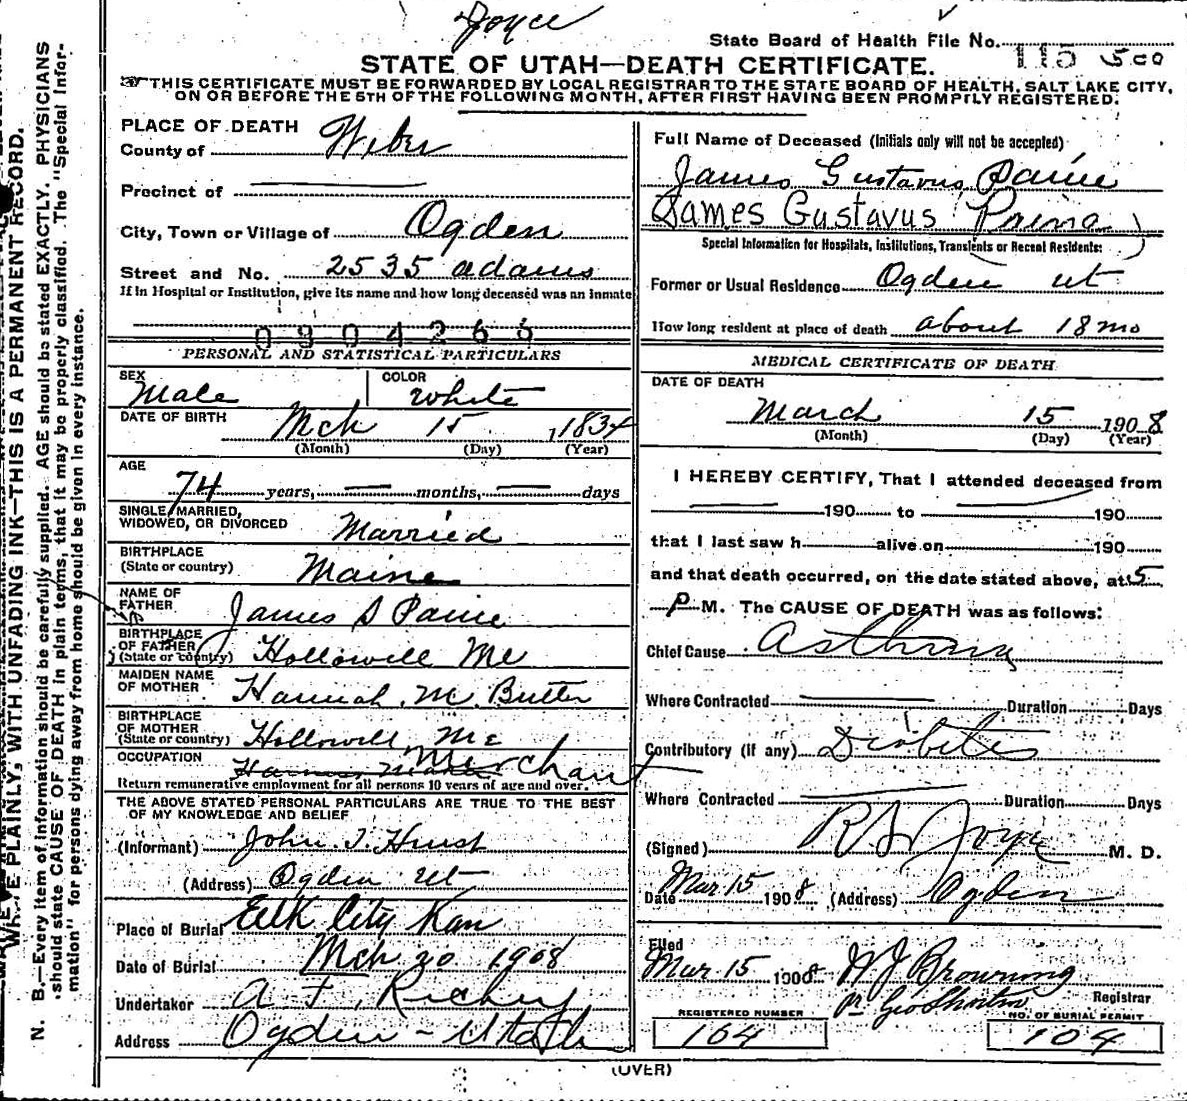 Joyce
State Board of Health File No. 115 500
STATE OF UTAH—DEATH CERTIFICATE.
THIS CERTIFICATE MUST BE FORWARDED BY LOCAL REGISTRAR TO THE STATE BOARD OF HEALTH, SALT LAKE CITY,
ON OR BEFORE THE 5TH OF THE FOLLOWING MONTH, AFTER FIRST HAVING BEEN PROMPTLY REGISTERED.
PLACE OF DEATH
County of Weber
Precinct of
City, Town or Village of Ogden
Street and No. 2535 adams
If in Hospital or Institution, give its name and how long deceased was an inmate
0904265
PERSONAL AND STATISTICAL PARTICULARS
SEX Male COLOR White
DATE OF BIRTH Mch 15, 1834
(Month) (Day) (Year)
AGE
74 years, — months, — days
SINGLE, MARRIED,
WIDOWED, OR DIVORCED Married
BIRTHPLACE
(State or country) Maine
NAME OF
FATHER James S Paine
BIRTHPLACE
OF FATHER
(State or country) Hollowell Me
MAIDEN NAME
OF MOTHER Hannah M. Butler
BIRTHPLACE
OF MOTHER
(State or country) Hollowell Me
OCCUPATION Harness Maker Merchant
Return remunerative employment for all persons 10 years of age and over.
THE ABOVE STATED PERSONAL PARTICULARS ARE TRUE TO THE BEST
OF MY KNOWLEDGE AND BELIEF
(Informant) John T. Hurst
(Address) Ogden Ut
Place of Burial Elk City Kan
Date of Burial Mch 20 1908
Undertaker A F. Richey
Address Ogden - Utah
Full Name of Deceased (Initials only will not be accepted)
James Gustavus Paine
James Gustavus (Paine)
Special Information for Hospitals, Institutions, Transients or Recent Residents:
Former or Usual Residence Ogden ut
How long resident at place of death about 18 mo
MEDICAL CERTIFICATE OF DEATH
DATE OF DEATH
March 15 1908
(Month) (Day) (Year)
I HEREBY CERTIFY, That I attended deceased from
— 190 to — 190
that I last saw h alive on 190
and that death occurred, on the date stated above, at 5
P M. The CAUSE OF DEATH was as follows:
Chief Cause Asthma
Where Contracted — Duration Days
Contributory (if any) Diabetes
Where Contracted — Duration Days
(Signed) R S Joyce M. D.
Date Mar 15 1908 (Address) Ogden
Filed
Mar 15 1908 H J Browning
pr Geo Shorten Registrar
REGISTERED NUMBER NO. OF BURIAL PERMIT
104 104
(OVER)
N. B.—Every item of information should be carefully supplied. AGE should be stated EXACTLY. PHYSICIANS
should state CAUSE OF DEATH in plain terms, that it may be properly classified. The "Special Infor-
mation" for persons dying away from home should be given in every instance.
WRITE PLAINLY, WITH UNFADING INK—THIS IS A PERMANENT RECORD.